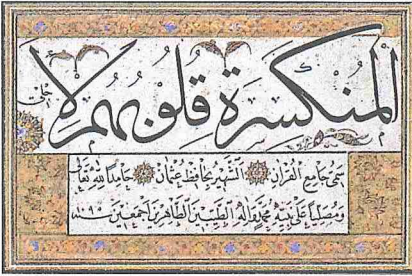 الْمُنْكَسِرَةِ قُلُوبُهُمْ لِاَجْلِي
سمي جامع القرآن الشهير بحافظ عثمان حامدا لله تعالى
ومصليا على نبيه محمد وآله الطيبين الطاهرين اجمعين سنه